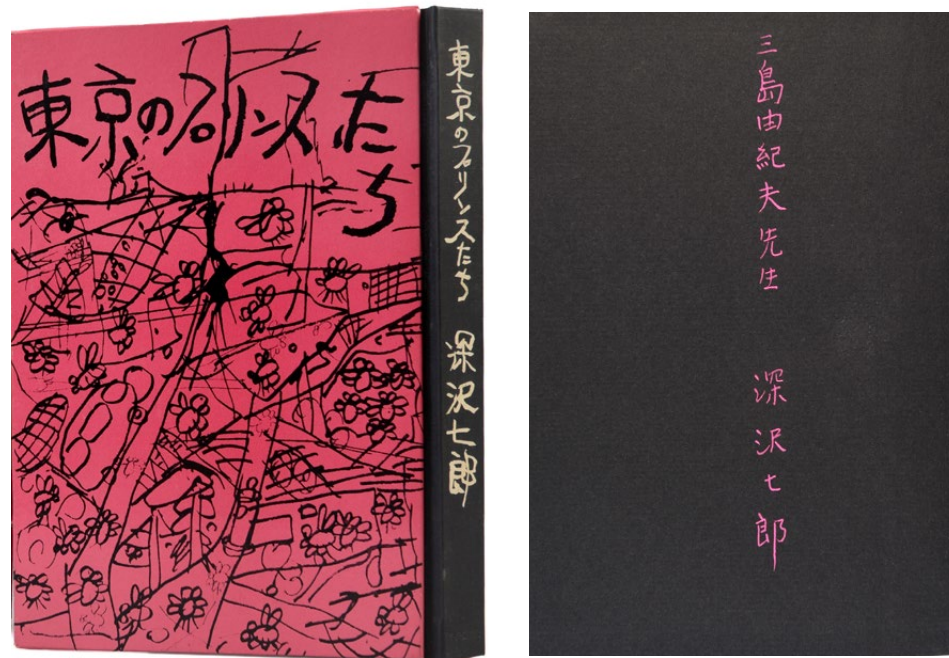 東京のプリンスたち
東京のプリンスたち 深沢七郎
三島由紀夫先生
深沢七郎